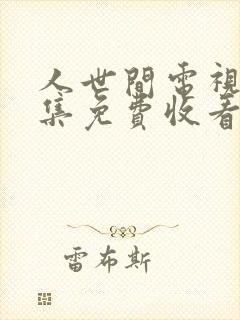 人世間電視
集免費收看
雷布斯